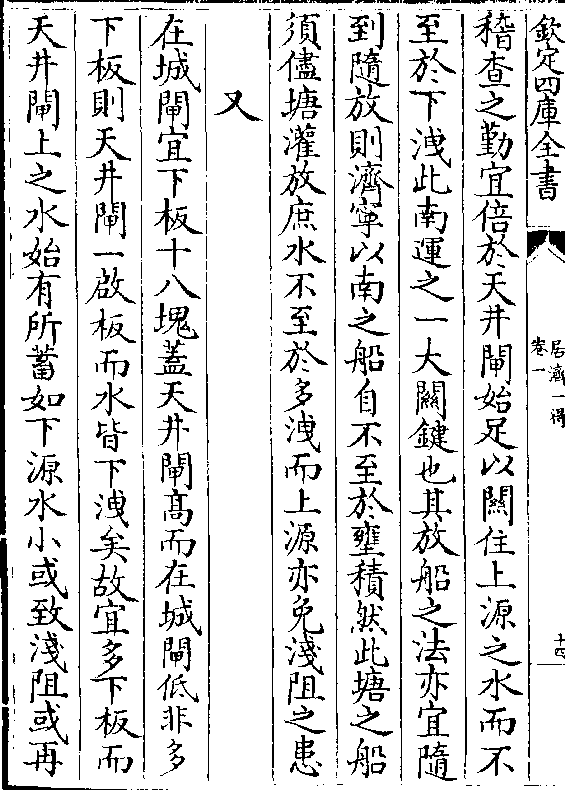 欽定四庫全書
居濟一得
卷一
十四
稽查之勤宜倍於天井閘始足以關住上源之水而不
至於下洩此南運之一大關鍵也其放船之法亦宜隨
到隨放則濟寧以南之船自不至於壅積然此塘之船
須儘塘灌放庶水不至於多洩而上源亦免淺阻之患
又
在城閘宜下板十八塊蓋天井閘高而在城閘低非多
下板則天井閘一啟板而水皆下洩矣故宜多下板而
天井閘上之水始有所蓄如下源水小或致淺阻或再